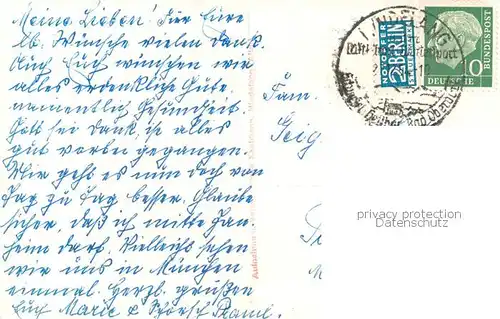 Meine Lieben! Für Eure
lb. Wünsche vielen Dank.
Auch Euch wünschen wir
alles erdenkliche Gute,
namentlich Gesundheit.
Gott sei Dank, ist alles
gut vorbei gegangen.
Mir geht es nun doch von
Tag zu Tag besser. Glaube
sicher, daß ich mitte Jan.
heim darf. Vielleicht sehen
wir uns in München
einmal. Herzl. grüßen
Euch Marie &
Fam.
Geig
NOTOPFER
2 BERLIN
STEUERMARKE
DEUTSCHE
BUNDESPOST
10
privacy protection
Datenschutz